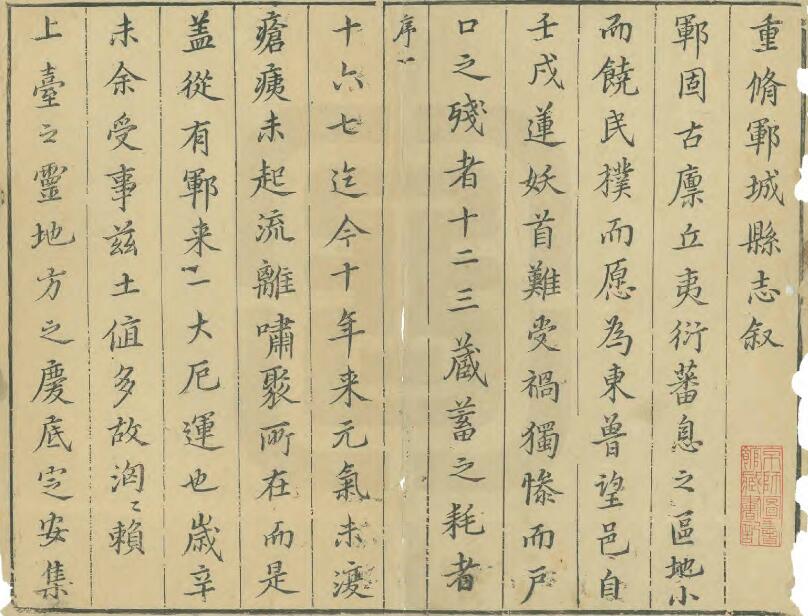 重脩鄆城縣志叙
鄆固古廪丘夷衍蕃息之區地小
而饒民樸而愿為東曾望邑自
壬戌蓮妖首難受禍獨慘而戶
口之殘者十二三蔵蓄之耗者
序一
十六七迄今十年来元氣未渡
瘡痍未起流離嘯聚所在而是
盖從有鄆来一大厄運也歳辛
未余受事兹土值多故洶〻賴
上臺之靈地方之慶底定安集
京師圖書館藏書記